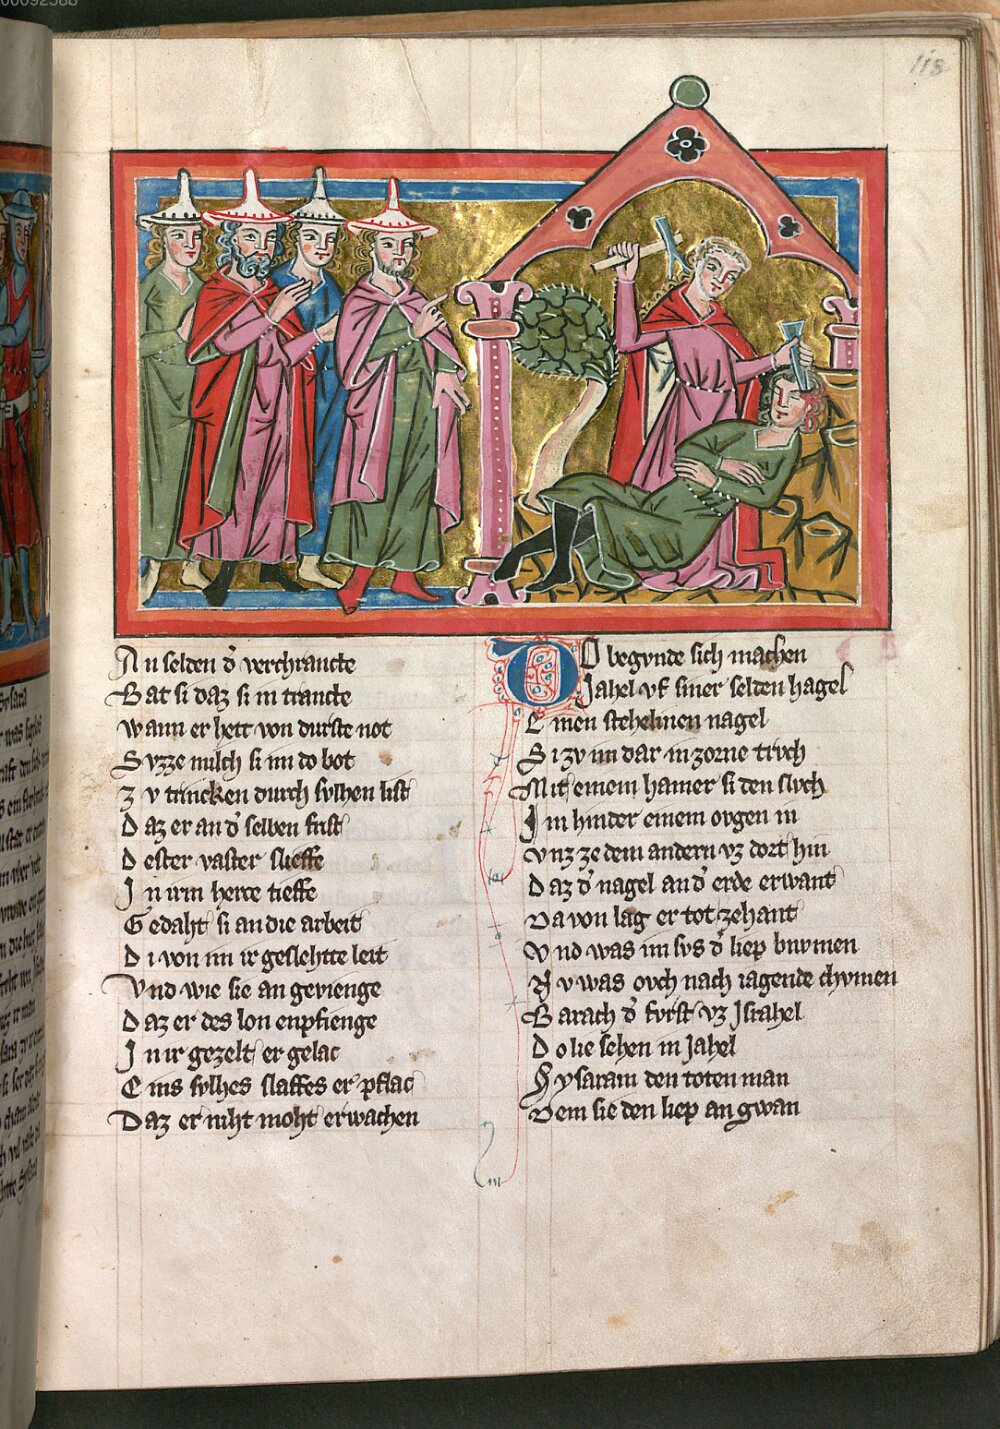 00092568
118
An selden d̛ verchrancte
Bat si daz si in trancte
Wann er hett von durste not
Svzze milch si im do bot
Zv trincken durch sylhen list
Daz er an d̛ selben frist
Dester vaster slieffe
In irm herce tieffe
Gedaht si an die arbeit
Di von im ir geslehtte leit
Vnd wie sie an gevienge
Daz er des lon enpfienge
In ir gezelt er gelac
Eins sylhes slaffes er pflac
Daz er niht moht erwachen
Do begvnde sich machen
Jahel vf siner selden hagel
Einen stehelinen nagel
Si zv im dar in zorne trvch
Mit einem hamer si den slvch
Im hinder einem orgen in
Vnz ze dem andern vz dort hin
Daz d̛ nagel an d̛ erde erwant
Da von lag er tot zehant
Vnd was im svs d̛ liep bnvmen
Nv was ovch nach iagende chvmen
Barach d̛ fvrst vz Jsrahel
Do lie sehen in Jahel
Sysaram den toten man
Dem sie den liep an gwan